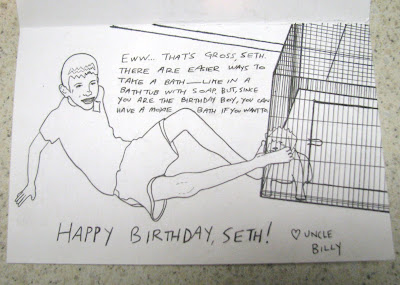 EWW... THAT'S GROSS, SETH.
THERE ARE EASIER WAYS TO
TAKE A BATH—LIKE IN A
BATHTUB WITH SOAP. BUT, SINCE
YOU ARE THE BIRTHDAY BOY, YOU CAN
HAVE A BATH IF YOU WANT TO.
HAPPY BIRTHDAY, SETH!
♡ UNCLE
BILLY